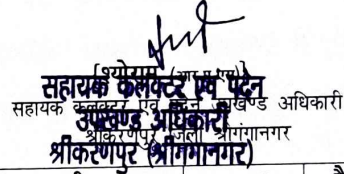 (श्योराम)
सहायक कलक्टर एवं पदेन
सहायक कलक्टर एवं पदेन उपखण्ड अधिकारी
उपखण्ड अधिकारी
श्रीकरणपुर जिला श्रीगंगानगर
श्रीकरणपुर (श्रीगंगानगर)